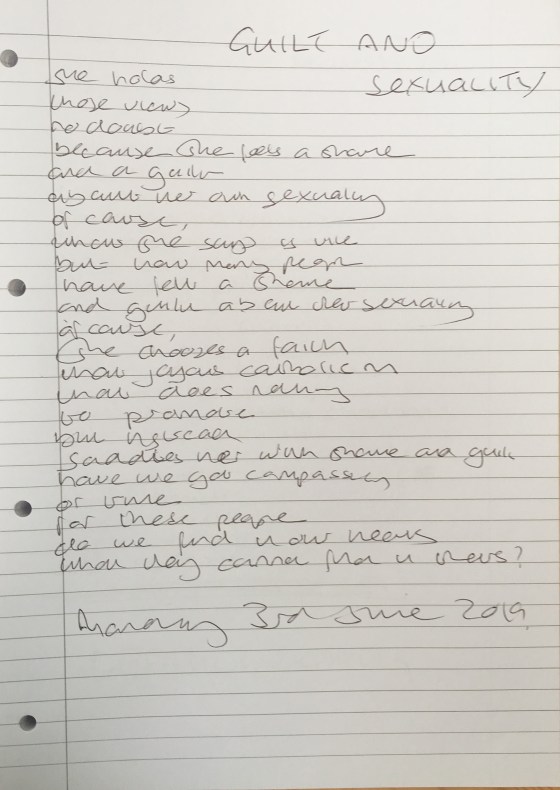 GUILT AND
SEXUALITY
she holds
those views
no doubt
because she feels a shame
and a guilt
about her own sexuality
of cause,
what she says is vile
but how many people
have felt a shame
and guilt about their sexuality
of cause,
she chooses a faith
that joyous catholicism
that does nothing
to promote
but instead
saddles her with shame and guilt
have we got compassion
or time
for these people
do we find in our hearts
what they cannot find in theirs?
Monday 3rd June 2019